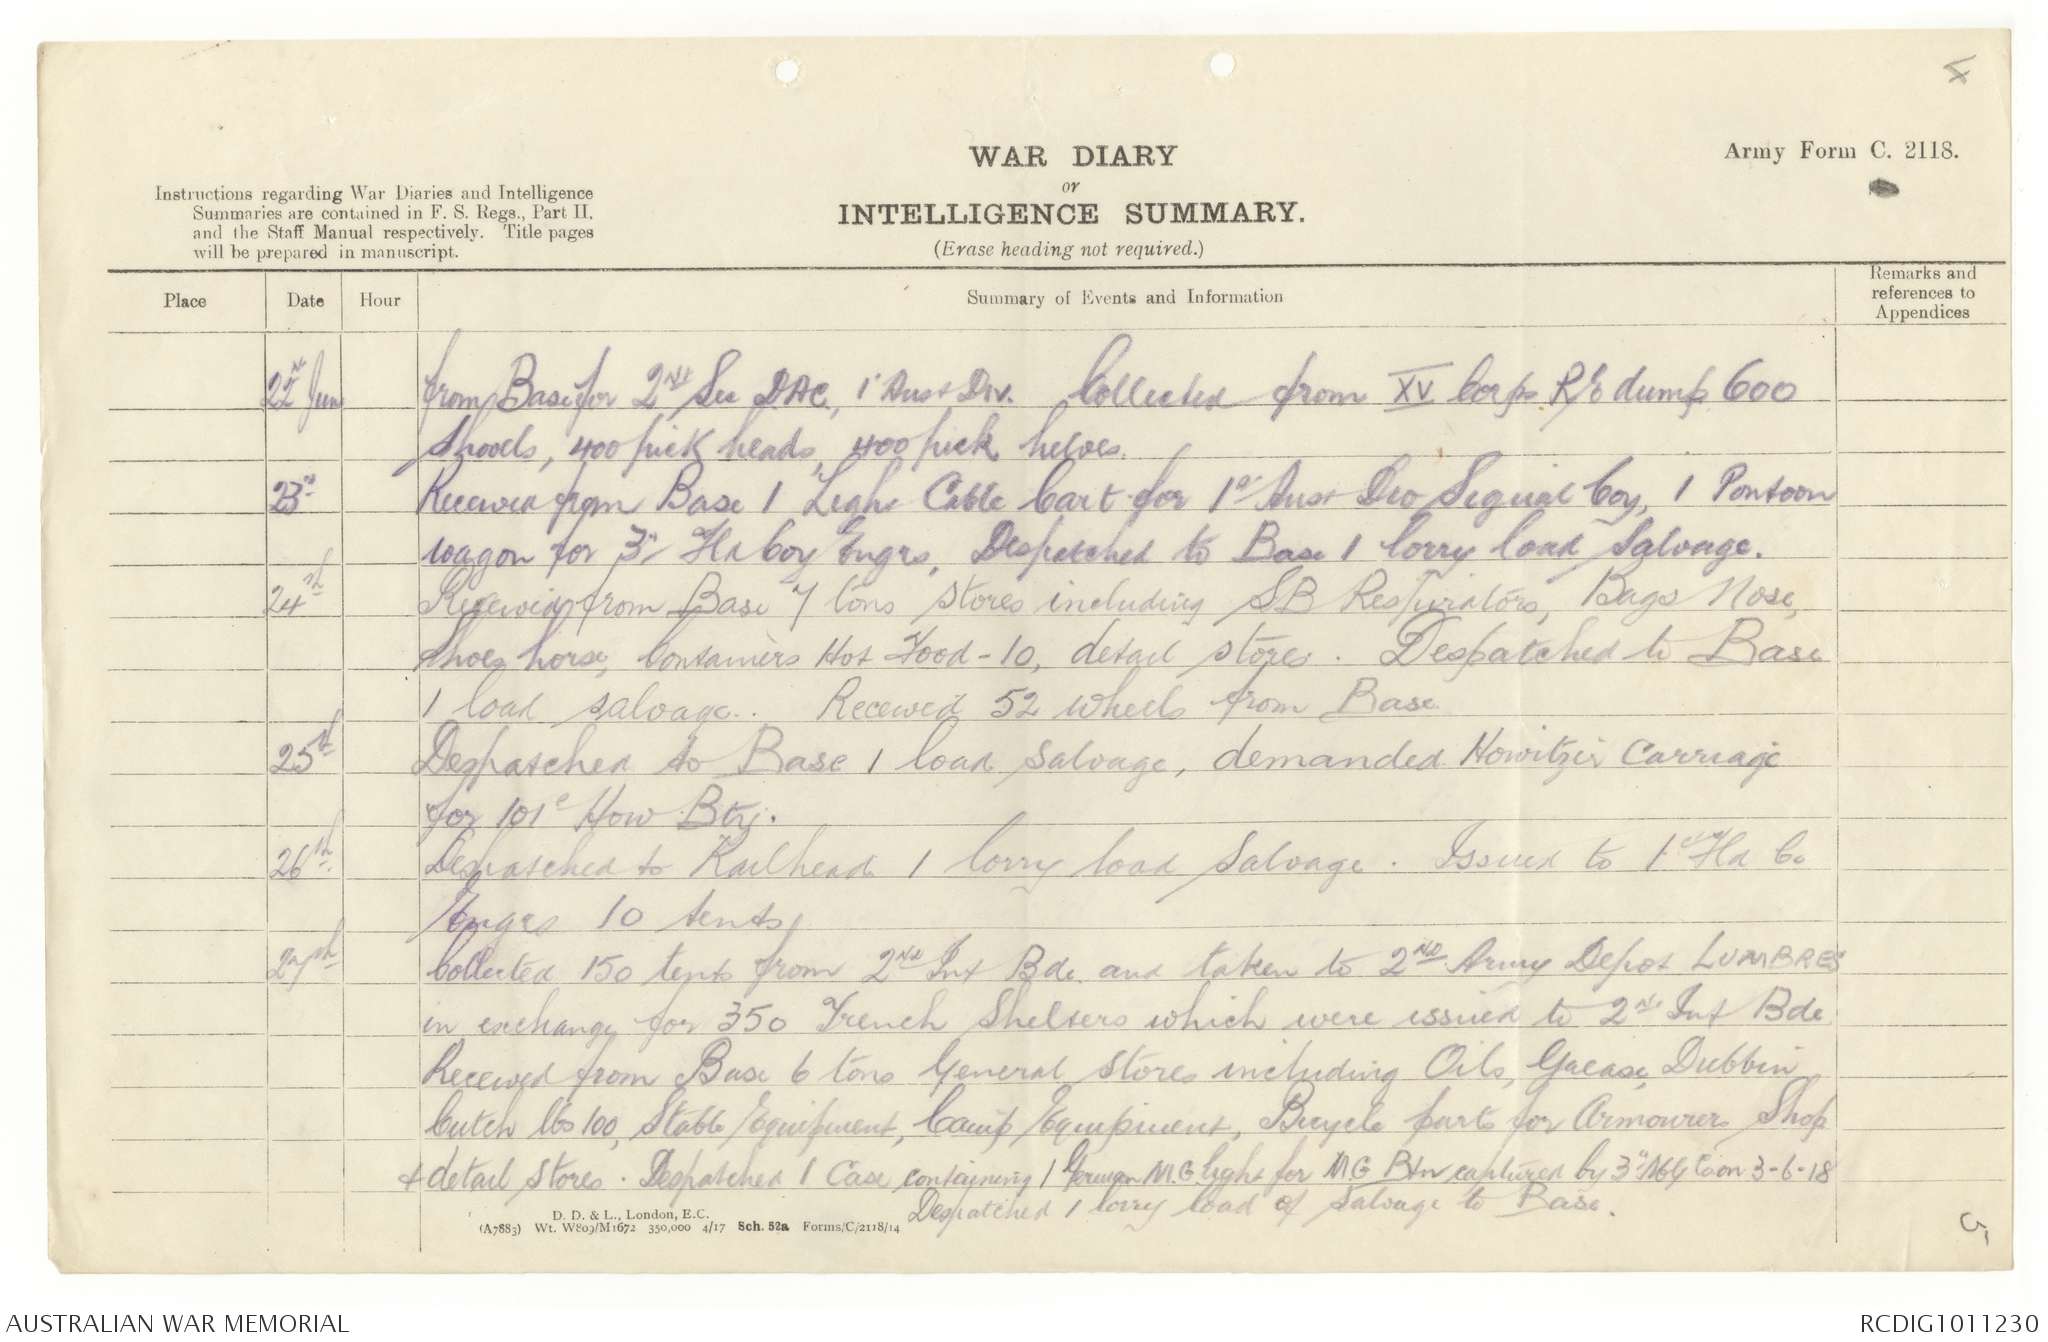 4
WAR DIARY
or
INTELLIGENCE SUMMARY.
(Erase heading not required.)
Army Form C. 2118.
Instructions regarding War Diaries and Intelligence
Summaries are contained in F. S. Regs., Part II.
and the Staff Manual respectively. Title pages
will be prepared in manuscript.
Place Date Hour Summary of Events and Information Remarks and
references to
Appendices
22nd Jun from Base for 2nd Sec DAC, 1st Aust Div. Collected from XV Corps R/E dump 600
shovels, 400 pick heads, 400 pick helves.
23rd Received from Base 1 Light Cable Cart for 1st Aust Div Signal Coy, 1 Pontoon
wagon for 3rd Fld Coy Engrs, Despatched to Base 1 lorry load Salvage.
24th Received from Base 7 tons stores including SB Respirators, Bags Nose,
Shoes horse, Containers Hot Food - 10, detail stores. Despatched to Base
1 load salvage. Received 52 wheels from Base
25th Despatched to Base 1 load salvage, demanded Howitzer Carriage
for 101e How Bty.
26th Despatched to Railhead 1 lorry load Salvage. Issued to 1st Fld Co
Engrs 10 tents
27th Collected 150 tents from 2nd Inf Bde and taken to 2ND Army Depot LUMBRES
in exchange for 350 Trench Shelters which were issued to 2nd Inf Bde
Received from Base 6 tons General Stores including Oils, Grease, Dubbin
Cutch lbs 100, Stable Equipment, Camp Equipment, Bicycle parts for Armourers Shop
& detail stores. Despatched 1 Case containing 1 German M.G light for MG Btn captured by 3rd MG Co on 3-6-18
Despatched 1 lorry load of salvage to Base.
D. D. & L., London, E.C.
(A7883) Wt. W809/M1672 350,000 4/17 Sch. 52a Forms/C/2118/14
AUSTRALIAN WAR MEMORIAL
RCDIG1011230